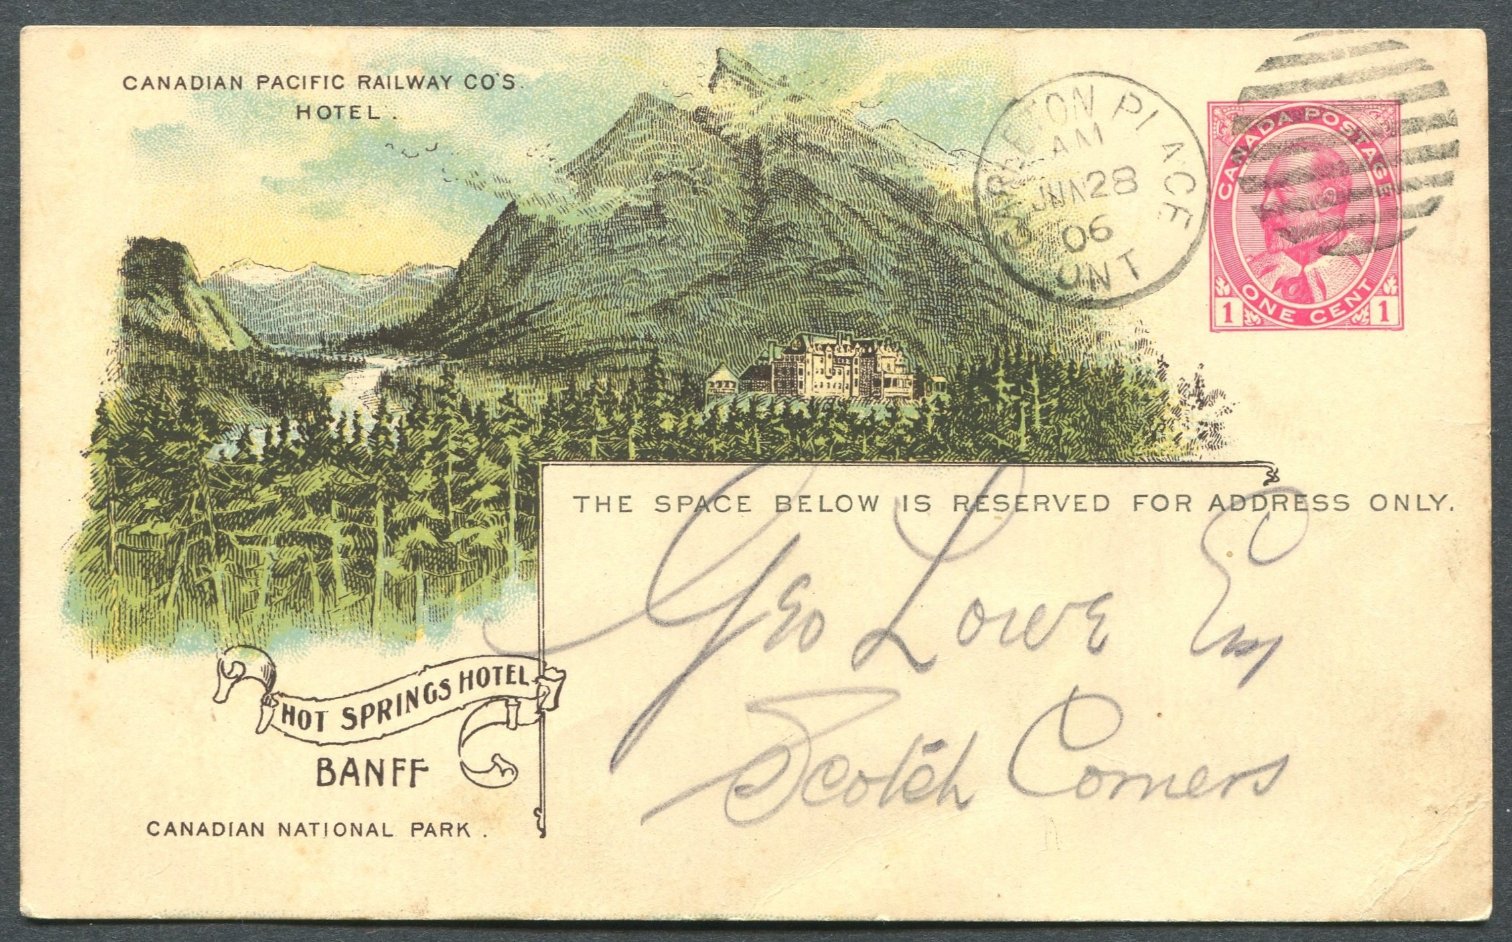 CANADIAN PACIFIC RAILWAY CO'S.
HOTEL.
CARLETON PLACE
AM
JUN 28
06
ONT
CANADA POSTAGE
1 ONE CENT 1
THE SPACE BELOW IS RESERVED FOR ADDRESS ONLY.
Geo Lowe Esq
Scotch Corners
HOT SPRINGS HOTEL
BANFF
CANADIAN NATIONAL PARK.